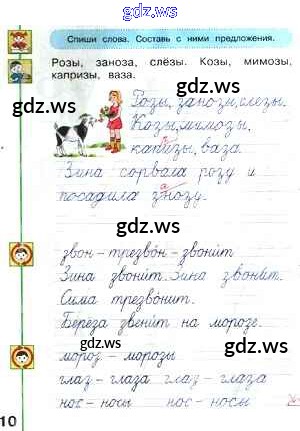 gdz.ws
Спиши слова. Составь с ними предложения.
Розы, заноза, слёзы. Козы, мимозы,
капризы, ваза.
gdz.ws
Розы, занози, слезы.
Козы, мимозы,
капизы, ваза.
р
Зина сорвала розу и
а
посадила знозу.
gdz.ws
gdz.ws
звон – трезвон – звонит
Зина звонит. Зина звонит.
Сима трезвонит.
Берёза звенит на морозе.
gdz.ws
gdz.ws
мороз – морозы
глаз – глаза глаз – глаза
нос – носы нос – носы
10